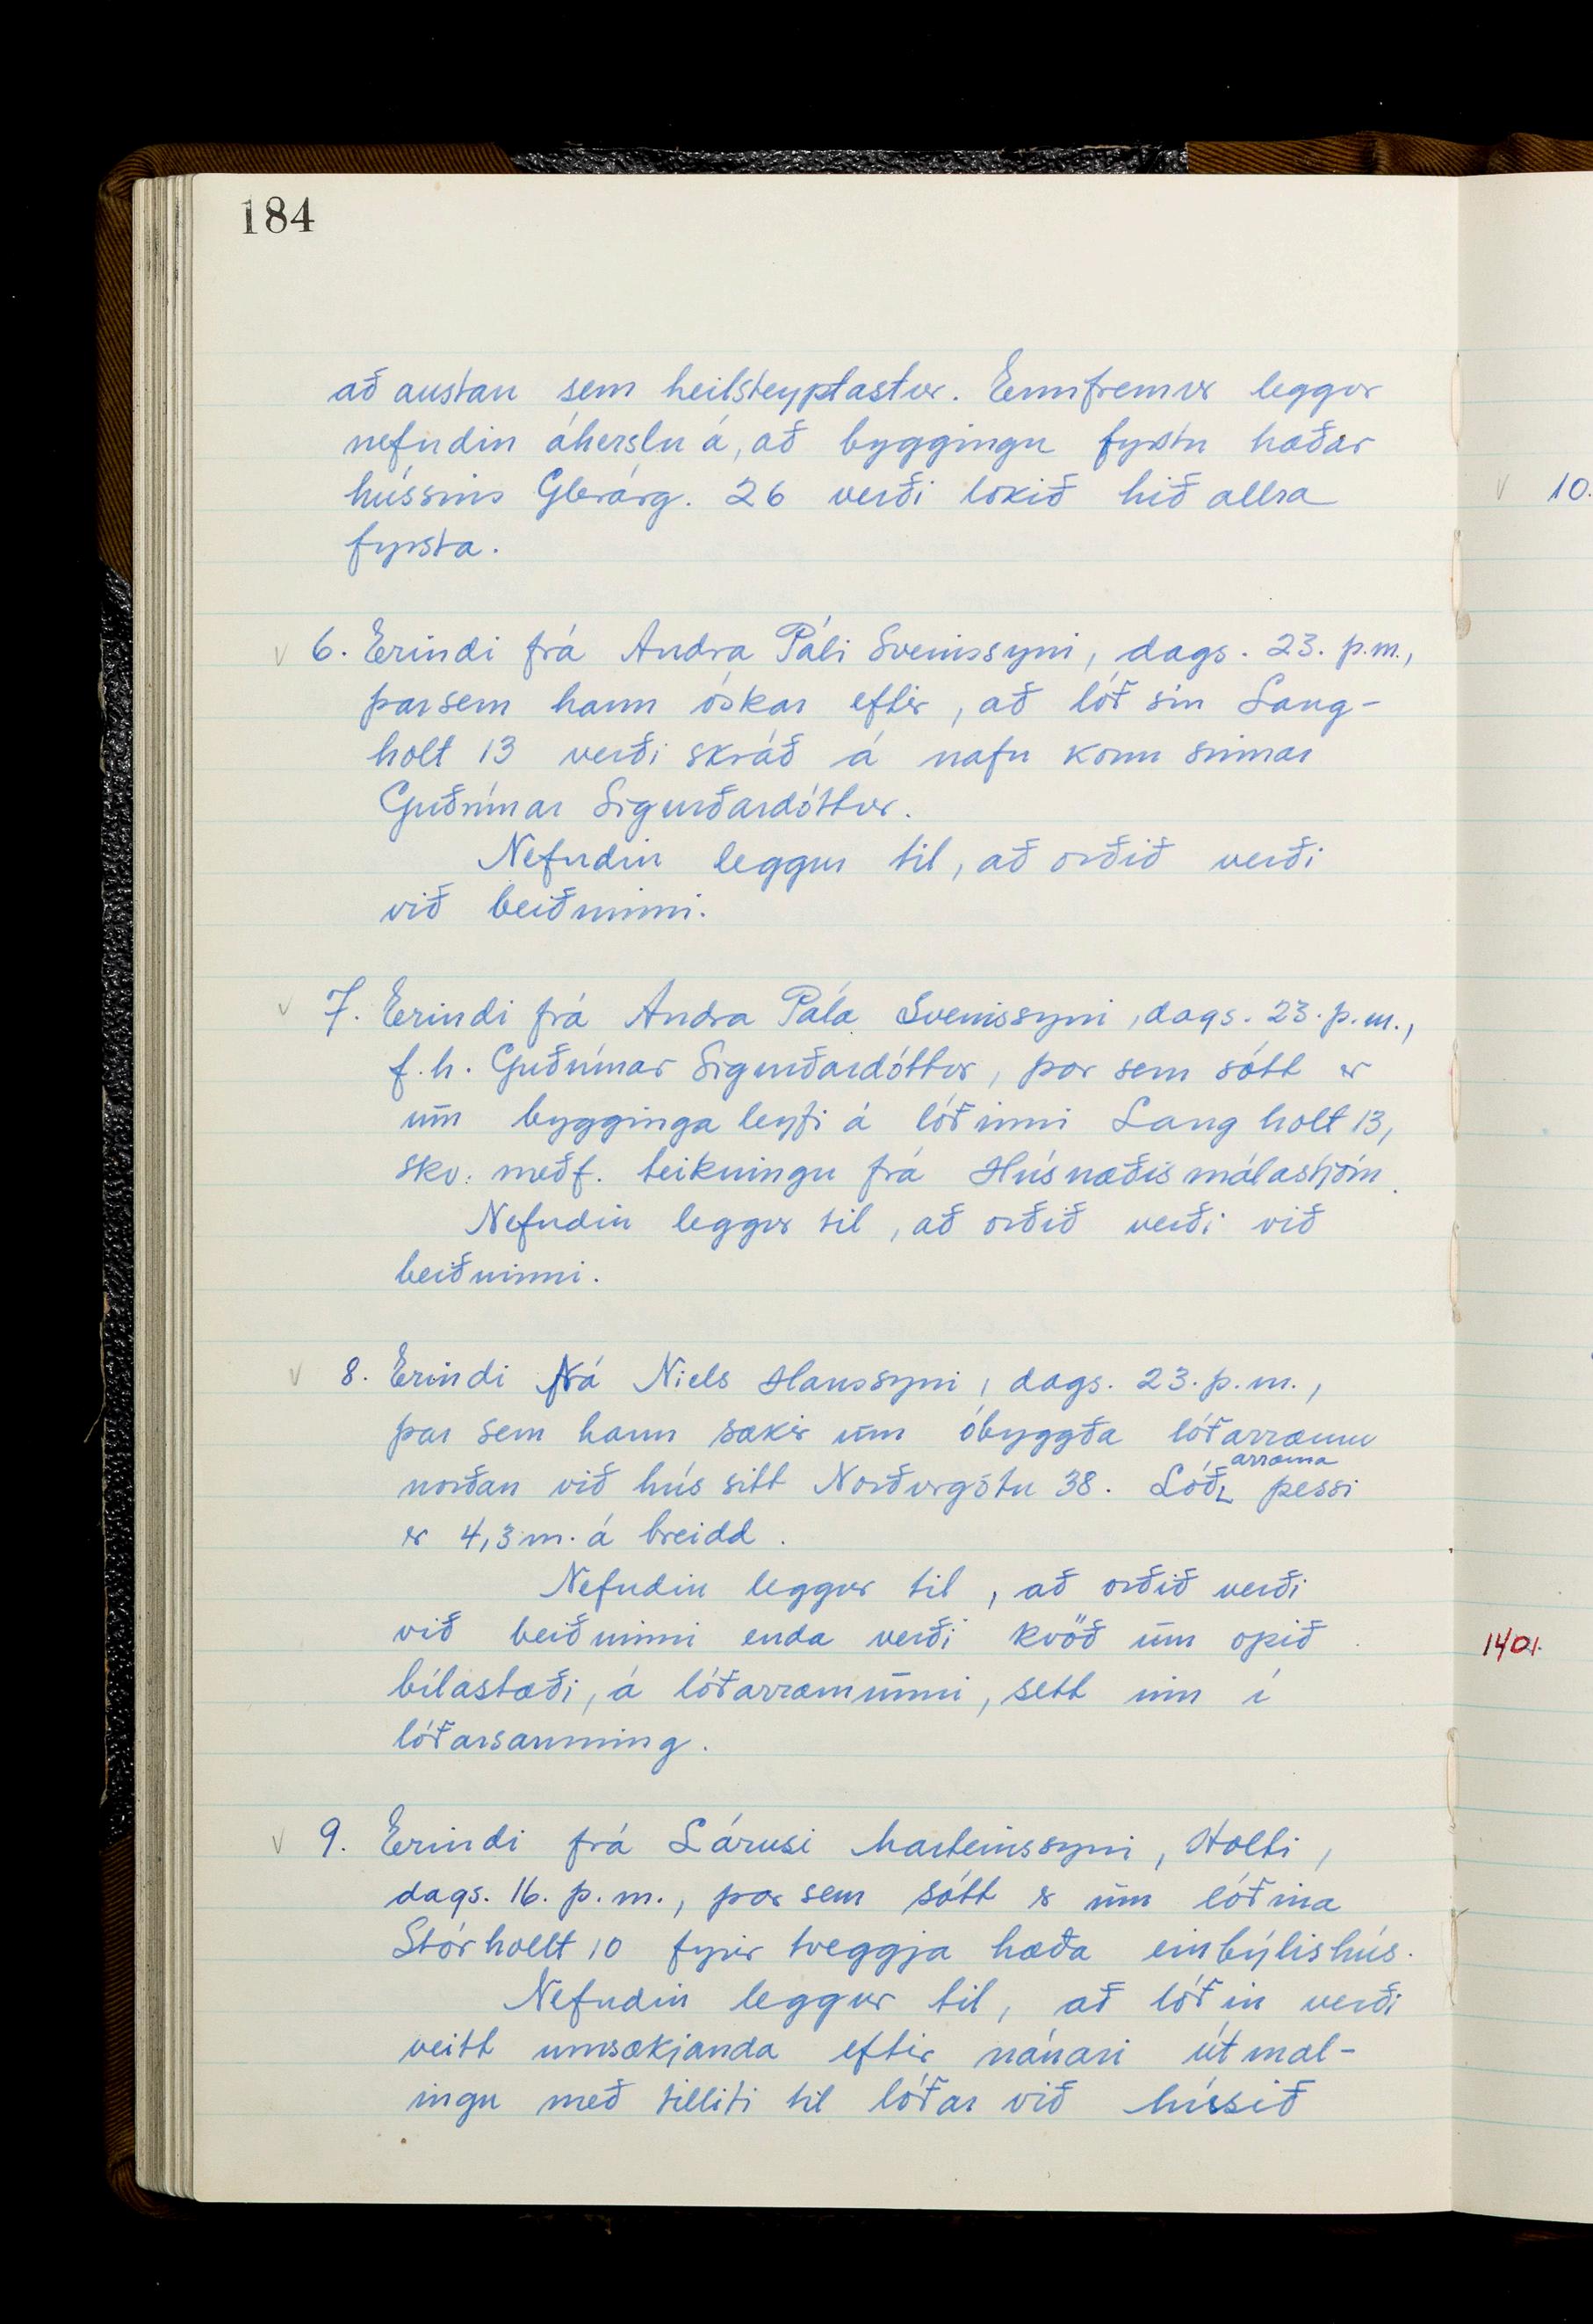 184
að austan sem heilsteyptastur. Ennfremur leggur
nefndin áherslu á, að byggingu fyrstu hæðar
hússins Glerárg. 26 verði lokið hið allra
fyrsta.
v 6. Erindi frá Andra Páli Sveinssyni, dags. 23. þ.m.,
þar sem hann óskar eftir, að lóð sín Lang-
holt 13 verði skráð á nafn konu sinnar
Guðrúnar Sigurðardóttur.
Nefndin leggur til, að orðið verði
við beiðninni.
v 7. Erindi frá Andra Pála Sveinssyni, dags. 23. þ.m.,
f.h. Guðrúnar Sigurðardóttur, þar sem sótt er
um bygginga leyfi á lóðinni Langholt 13,
skv. meðf. teikningu frá Húsnæðismálastjórn.
Nefndin leggur til, að orðið verði við
beiðninni.
v 8. Erindi frá Niels Hanssyni, dags. 23. þ.m.,
þar sem hann sækir um óbyggða lóðarræmu
norðan við hús sitt Norðurgötu 38. Lóðarræma þessi
er 4,3 m. á breidd.
Nefndin leggur til, að orðið verði
við beiðninni enda verði kvöð um opið
bílastæði, á lóðarræmunni, sett inn í
lóðarsamning.
v 9. Erindi frá Lárusi Marteinssyni, Holti,
dags. 16. þ.m., þar sem sótt er um lóðina
Stórhollt 10 fyrir tveggja hæða einbýlishús.
Nefndin leggur til, að lóðin verði
veitt umsækjanda eftir nánari útmæl-
ingu með tilliti til lóðar við húsið
v 10.
1401.